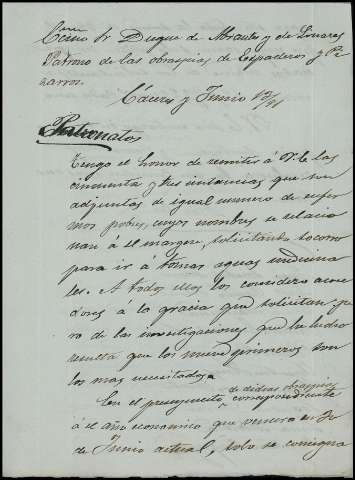 Excmo Sr Duque de Abrantes y de Linares
Patrono de las obras pias de Espaderos y Pi
zarros.
Cáceres y Junio 13/91
Patronatos
Tengo el honor de remitir á V.E. las
cincuenta y tres instancias que son
adjuntas de igual numero de enfer
mos pobres, cuyos nombres se relacio
nan á el margen, solicitando socorro
para ir á tomar aguas medicina
les. A todos ellos los considero acree
dores a la gracia que solicitan, pe
ro de las investigaciones que he hecho
resulta que los nueve primeros son
los mas necesitados.
de dichas obras pias
En el presupuesto correspondiente
á el año economico que vence en 30
de Junio actual, solo se consigna